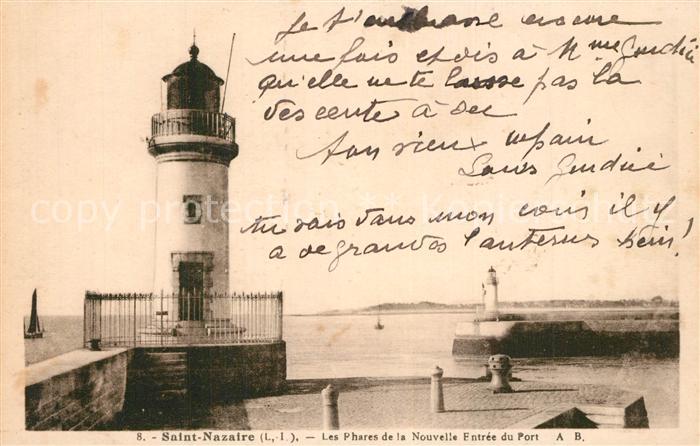 Je t'embrasse encore
une fois et dis à Mme Gendrié
qu'elle ne te laisse pas la
descente à sec
Ton vieux copain
Louis Gendrié
tu vois dans mon coin il y
a de grandes lanternes hein!
copy protection ** Kopierschutz
8. - Saint-Nazaire (L.-I.), — Les Phares de la Nouvelle Entrée du Port A B.